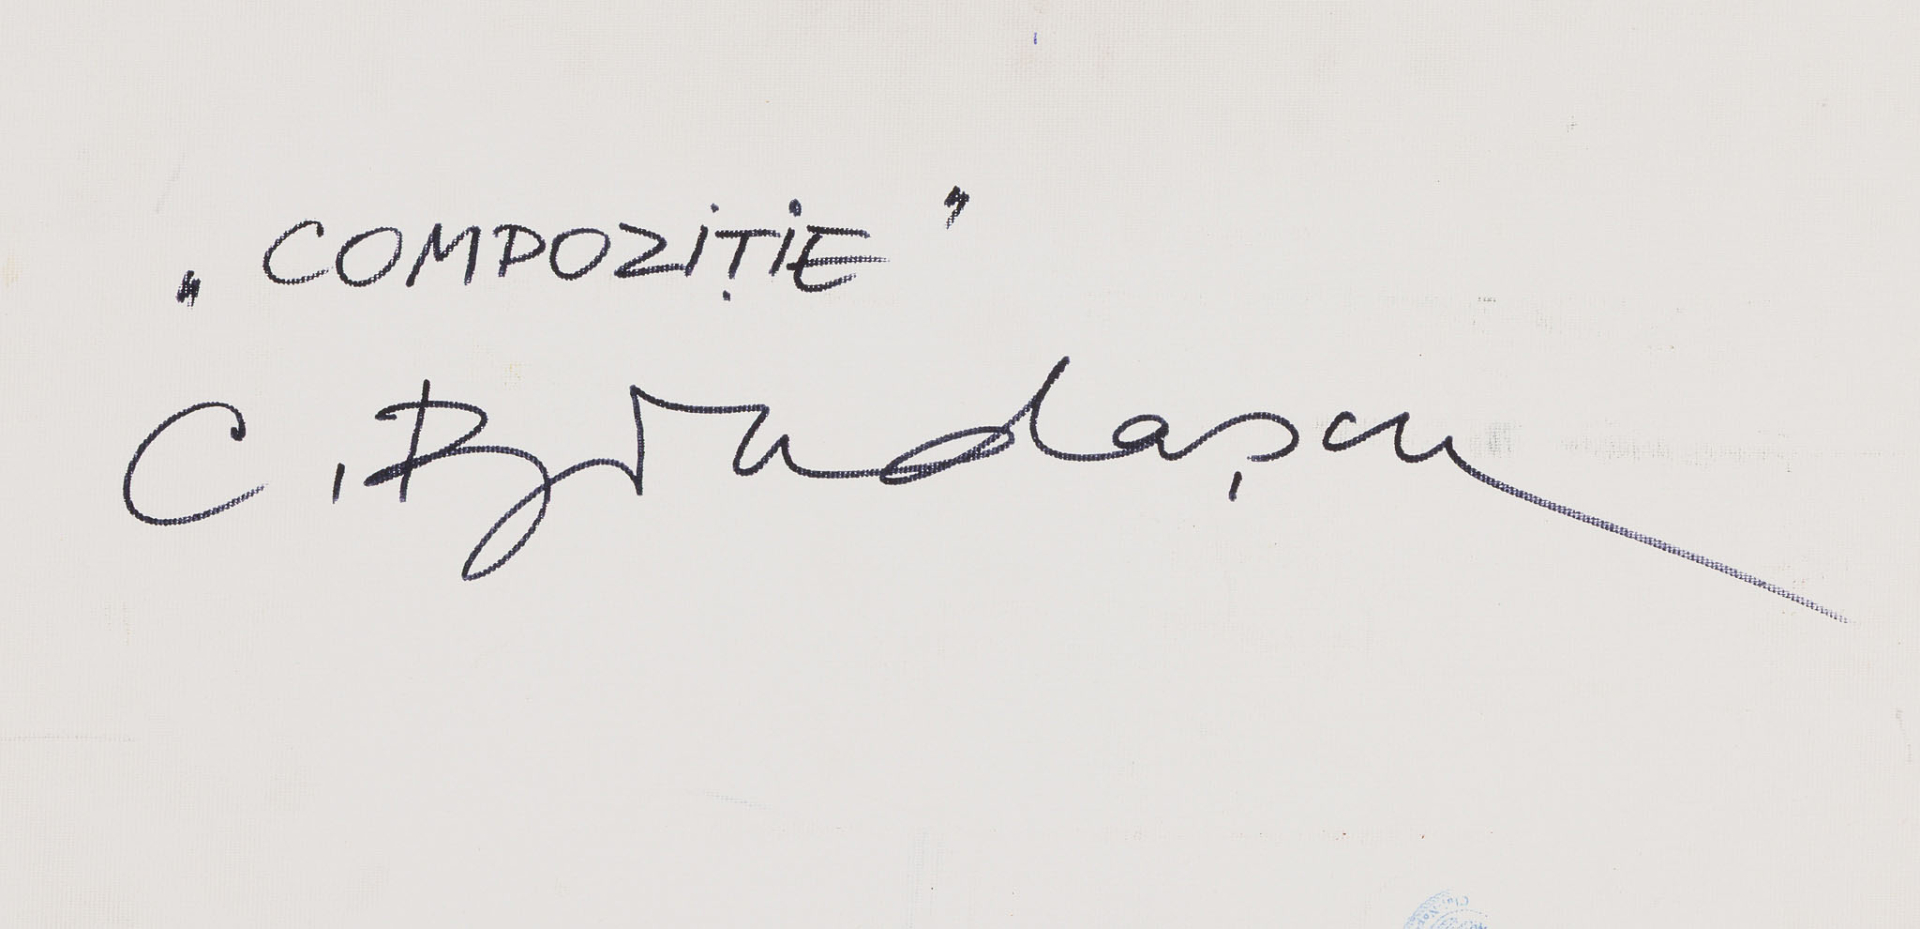 „COMPOZIȚIE”
C. Brudașcu